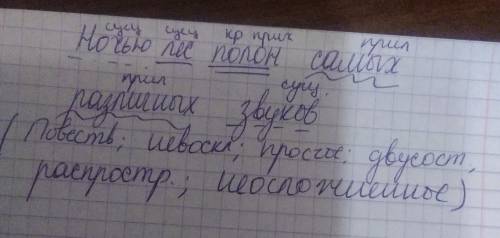 сущ сущ кр прил прил
Ночью лес полон самых
прил сущ.
различных звуков
(Повеств; невоскл; простое; двусост,
распростр.; неосложненное)